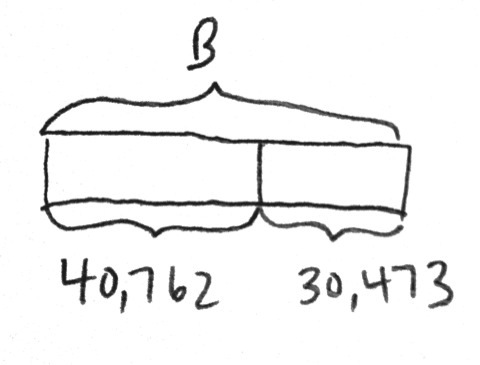 B
40,762 30,473